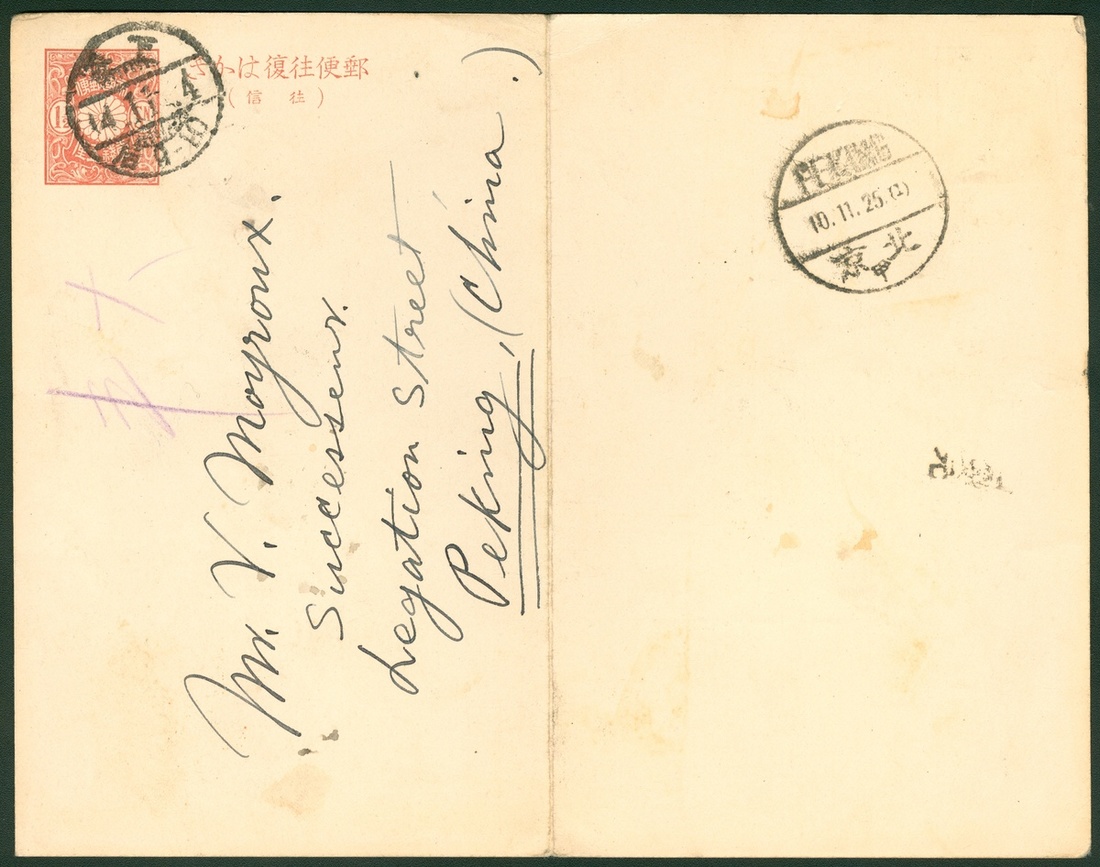 郵便往復はかき
(往信)
1½
14.11.4
Mr. V. Moyroux.
Successeur.
Legation Street
Peking, (China.)
PEKING
10.11.25.(1)
北京
甲